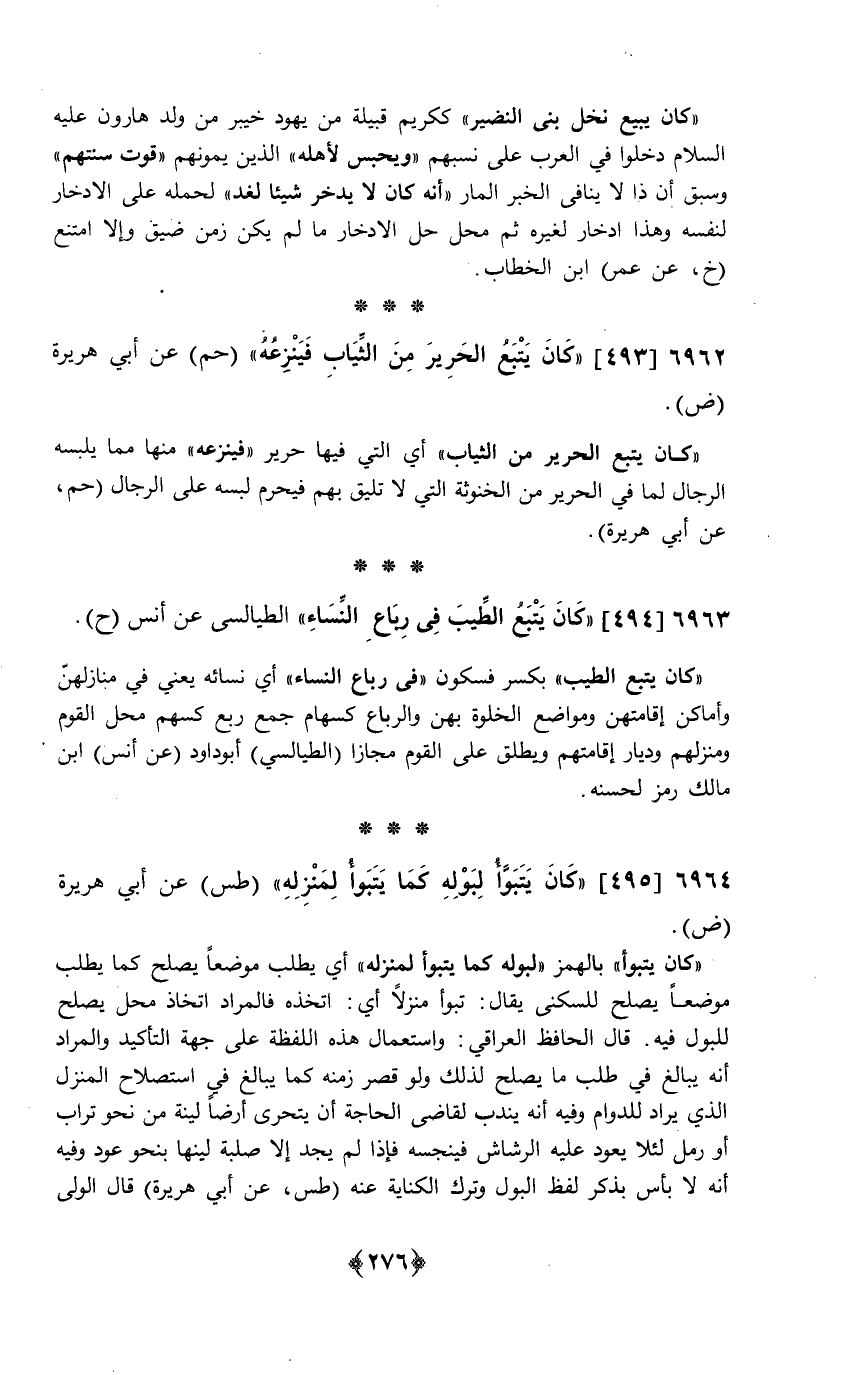 «كان يبيع نخل بنى النضير» ككريم قبيلة من يهود خيبر من ولد هارون عليه
السلام دخلوا في العرب على نسبهم «ويحبس لأهله» الذين يمونهم «قوت سنتهم»
وسبق أن ذا لا ينافى الخبر المار «أنه كان لا يدخر شيئا لغد» لحمله على الادخار
لنفسه وهذا ادخار لغيره ثم محل حل الادخار ما لم يكن زمن ضيق وإلا امتنع
(خ، عن عمر) ابن الخطاب.
* * *
٦٩٦٢ [٤٩٣] «كَانَ يَتْبَعُ الحَرِيرَ مِنَ الثِّيَابِ فَيَنْزِعُهُ» (حم) عن أبي هريرة
(ض).
«كـان يتبع الحرير من الثياب» أي التي فيها حرير «فينزعه» منها مما يلبسه
الرجال لما في الحرير من الخنوثة التي لا تليق بهم فيحرم لبسه على الرجال (حم،
عن أبي هريرة).
* * *
٦٩٦٣ [٤٩٤] «كَانَ يَتْبَعُ الطِّيبَ فِى رِبَاعِ النِّسَاءِ» الطيالسى عن أنس (ح).
«كان يتبع الطيب» بكسر فسكون «فى رباع النساء» أي نسائه يعني في منازلهنّ
وأماكن إقامتهن ومواضع الخلوة بهن والرباع كسهام جمع ربع كسهم محل القوم
ومنزلهم وديار إقامتهم ويطلق على القوم مجازا (الطيالسي) أبوداود (عن أنس) ابن
مالك رمز لحسنه.
* * *
٦٩٦٤ [٤٩٥] «كَانَ يَتَبَوَّأُ لِبَوْلِهِ كَمَا يَتَبَوأُ لِمَنْزِلِهِ» (طس) عن أبي هريرة
(ض).
«كان يتبوأ» بالهمز «لبوله كما يتبوأ لمنزله» أي يطلب موضعاً يصلح كما يطلب
موضعـاً يصلح للسكنى يقال: تبوأ منزلاً أي: اتخذه فالمراد اتخاذ محل يصلح
للبول فيه. قال الحافظ العراقي: واستعمال هذه اللفظة على جهة التأكيد والمراد
أنه يبالغ في طلب ما يصلح لذلك ولو قصر زمنه كما يبالغ في استصلاح المنزل
الذي يراد للدوام وفيه أنه يندب لقاضى الحاجة أن يتحرى أرضاً لينة من نحو تراب
أو رمل لئلا يعود عليه الرشاش فينجسه فإذا لم يجد إلا صلبة لينها بنحو عود وفيه
أنه لا بأس بذكر لفظ البول وترك الكناية عنه (طس، عن أبي هريرة) قال الولى
﴿٢٧٦﴾